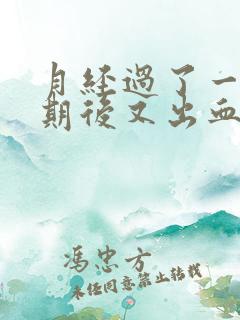 月经過了一
期後又出血
馮忠方
未经同意禁止转载